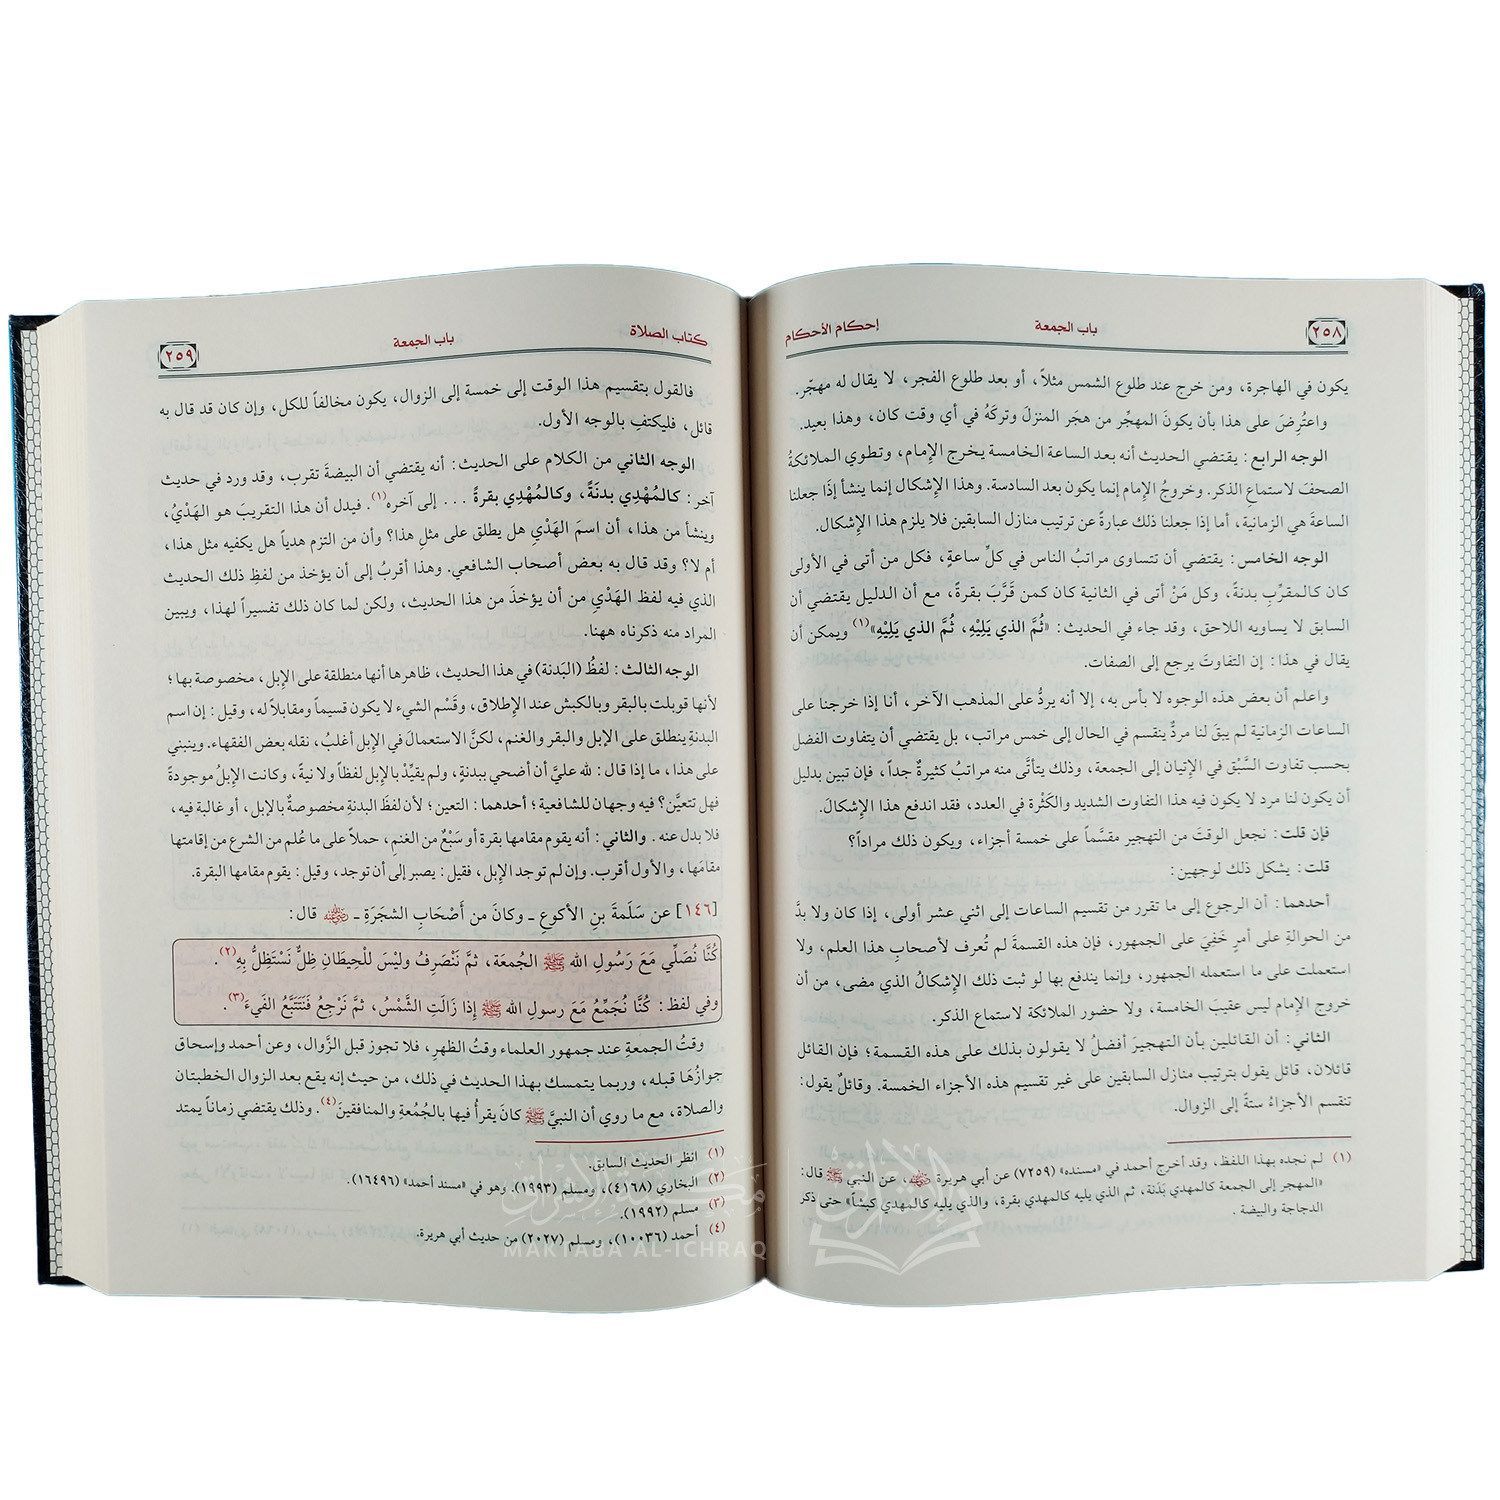 ٢٥٨ باب الجمعة إحكام الأحكام
يكون في الهاجرة، ومن خرج عند طلوع الشمس مثلاً، أو بعد طلوع الفجر، لا يقال له مهجّر.
واعتُرِضَ على هذا بأن يكونَ المهجِّر من هجَر المنزلَ وتركَهُ في أي وقت كان، وهذا بعيد.
الوجه الرابع: يقتضي الحديث أنه بعد الساعة الخامسة يخرج الإمام، وتطوي الملائكةُ
الصحفَ لاستماعِ الذكر. وخروجُ الإمام إنما يكون بعد السادسة. وهذا الإشكال إنما ينشأ إذَا جعلنا
الساعةَ هي الزمانية، أما إذا جعلنا ذلك عبارةً عن ترتيب منازل السابقين فلا يلزم هذا الإشكال.
الوجه الخامس: يقتضي أن تتساوى مراتبُ الناس في كلِّ ساعةٍ، فكل من أتى في الأولى
كان كالمقرِّبِ بدنةً، وكل مَنْ أتى في الثانية كان كمن قَرَّبَ بقرةً، مع أن الدليل يقتضي أن
السابق لا يساويه اللاحق، وقد جاء في الحديث: «ثُمَّ الذي يَلِيْهِ، ثُمَّ الذي يَلِيْهِ»(١) ويمكن أن
يقال في هذا: إن التفاوتَ يرجع إلى الصفات.
واعلم أن بعض هذه الوجوه لا بأس به، إلا أنه يردُّ على المذهب الآخر، أنا إذا خرجنا على
الساعات الزمانية لم يبقَ لنا مردٌّ ينقسم في الحال إلى خمس مراتب، بل يقتضي أن يتفاوت الفضل
بحسب تفاوت السَّبْق في الإتيان إلى الجمعة، وذلك يتأتَّى منه مراتبُ كثيرةٌ جداً، فإن تبين بدليل
أن يكون لنا مرد لا يكون فيه هذا التفاوت الشديد والكَثْرة في العدد، فقد اندفع هذا الإشكالُ.
فإن قلت: نجعل الوقتَ من التهجير مقسَّماً على خمسة أجزاء، ويكون ذلك مراداً؟
قلت: يشكل ذلك لوجهين:
أحدهما: أن الرجوع إلى ما تقرر من تقسيم الساعات إلى اثني عشر أولى، إذا كان ولا بدَّ
من الحوالةِ على أمرٍ خَفِيَ على الجمهور، فإن هذه القسمةَ لم تُعرف لأصحابِ هذا العلم، ولا
استعملت على ما استعمله الجمهور، وإنما يندفع بها لو ثبت ذلك الإشكالُ الذي مضى، من أن
خروج الإمام ليس عقيبَ الخامسة، ولا حضور الملائكة لاستماع الذكر.
الثاني: أن القائلين بأن التهجيرَ أفضلُ لا يقولون بذلك على هذه القسمة؛ فإن القائل
قائلان، قائل يقول بترتيب منازل السابقين على غير تقسيم هذه الأجزاء الخمسة. وقائلٌ يقول:
تنقسم الأجزاءُ ستةً إلى الزوال.
(١) لم نجده بهذا اللفظ، وقد أخرج أحمد في «مسنده» (٧٢٥٩) عن أبي هريرة ﷺ، عن النبي ﷺ قال:
"المهجر إلى الجمعة كالمهدي بَدَنة، ثم الذي يليه كالمهدي بقرة، والذي يليه كالمهدي كبشاً" حتى ذكر
الدجاجة والبيضة.
كتاب الصلاة باب الجمعة ٢٥٩
فالقول بتقسيم هذا الوقت إلى خمسة إلى الزوال، يكون مخالفاً للكل، وإن كان قد قال به
قائل، فليكتفِ بالوجه الأول.
الوجه الثاني من الكلام على الحديث: أنه يقتضي أن البيضةَ تقرب، وقد ورد في حديث
آخر: كالمُهْدِي بدنَةً، وكالمُهْدِي بقرةً ... إلى آخره(١). فيدل أن هذا التقريبَ هو الهَدْيُ،
وينشأ من هذا، أن اسمَ الهَدْيِ هل يطلق على مثلِ هذا؟ وأن من التزم هدياً هل يكفيه مثل هذا،
أم لا؟ وقد قال به بعض أصحاب الشافعي. وهذا أقربُ إلى أن يؤخذ من لفظ ذلك الحديث
الذي فيه لفظ الهَدْيِ من أن يؤخذَ من هذا الحديث، ولكن لما كان ذلك تفسيراً لهذا، ويبين
المراد منه ذكرناه ههنا.
الوجه الثالث: لفظُ (البَدنة) في هذا الحديث، ظاهرها أنها منطلقة على الإبل، مخصوصة بها؛
لأنها قوبلت بالبقر وبالكبش عند الإطلاق، وقَسْم الشيء لا يكون قسيماً ومقابلاً له، وقيل: إن اسم
البدنةِ ينطلق على الإبل والبقر والغنم، لكنَّ الاستعمالَ في الإبل أغلبُ، نقله بعض الفقهاء. وينبني
على هذا، ما إذا قال: لله عليَّ أن أضحي ببدنةٍ، ولم يقيِّدْ بالإبل لفظاً ولا نيةً، وكانت الإبلُ موجودةً
فهل تتعيَّن؟ فيه وجهان للشافعية؛ أحدهما: التعين؛ لأن لفظَ البدنةِ مخصوصةٌ بالإبل، أو غالبة فيه،
فلا بدل عنه. والثاني: أنه يقوم مقامها بقرة أو سَبْعٌ من الغنمِ، حملاً على ما عُلم من الشرع من إقامتها
مقامَها، والأول أقرب. وإن لم توجد الإبل، فقيل: يصبر إلى أن توجد، وقيل: يقوم مقامها البقرة.
[١٤٦] عن سَلَمةَ بنِ الأكوعِ ـ وكانَ من أَصْحَابِ الشجَرَةِ ـ ﷺ قال:
كُنَّا نُصَلِّي مَعَ رَسُولِ الله ﷺ الجُمعَة، ثمَّ نَنْصَرِفُ وليْسَ للْحِيطَانِ ظِلٌّ نَسْتَظِلُّ بِهِ(٢).
وفي لفظ: كُنَّا نُجَمِّعُ مَعَ رسولِ الله ﷺ إذا زَالَتِ الشَّمْسُ، ثمَّ نَرْجِعُ فَنَتَتَبَّعُ الفَيءَ(٣).
وقتُ الجمعةِ عند جمهور العلماء وقتُ الظهرِ، فلا تجوز قبل الزَّوال، وعن أحمد وإسحاق
جوازُهَا قبله، وربما يتمسك بهذا الحديث في ذلك، من حيث إنه يقع بعد الزوال الخطبتان
والصلاة، مع ما روي أن النبيَّ ﷺ كانَ يقرأُ فيها بالجُمُعةِ والمنافقينَ(٤). وذلك يقتضي زماناً يمتد
(١) انظر الحديث السابق.
(٢) البخاري (٤١٦٨)، ومسلم (١٩٩٣). وهو في «مسند أحمد» (١٦٤٩٦).
(٣) مسلم (١٩٩٢).
(٤) أحمد (١٠٠٣٦)، ومسلم (٢٠٢٧) من حديث أبي هريرة.
مكتبة الإشراق
MAKTABA AL-ICHRAQ
الإشراق